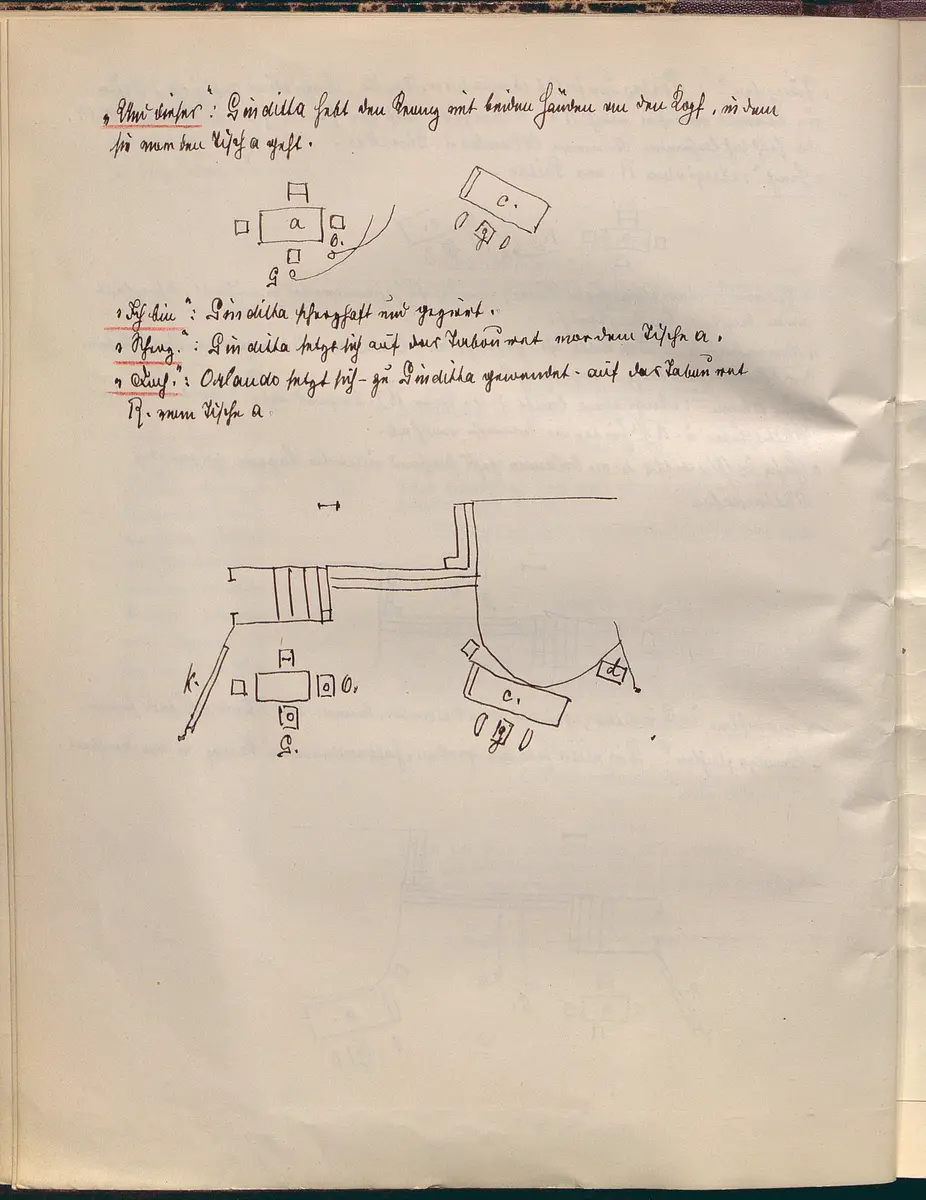 „Und dieser“: Giuditta hebt den Krug mit beiden Händen an den Kopf, indem
sie vor den Tisch a geht.
a
O.
G
c.
g
„Ich bin“: Giuditta scherzhaft und geziert.
„Scherz.“: Giuditta setzt sich auf das Tabouret vor dem Tische a.
„Euch.“: Orlando setzt sich – zu Giuditta gewendet – auf das Tabouret
R. vom Tische a.
k.
O.
G.
c.
g
d